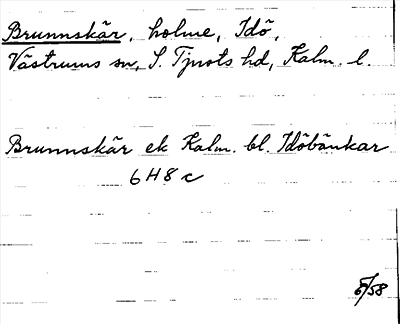 Brunnskär, holme, Idö,
Västrums sn, S. Tjusts hd, Kalm. l.
Brunnskär ek Kalm. bl. Idöbänkar
6H8c
6/58